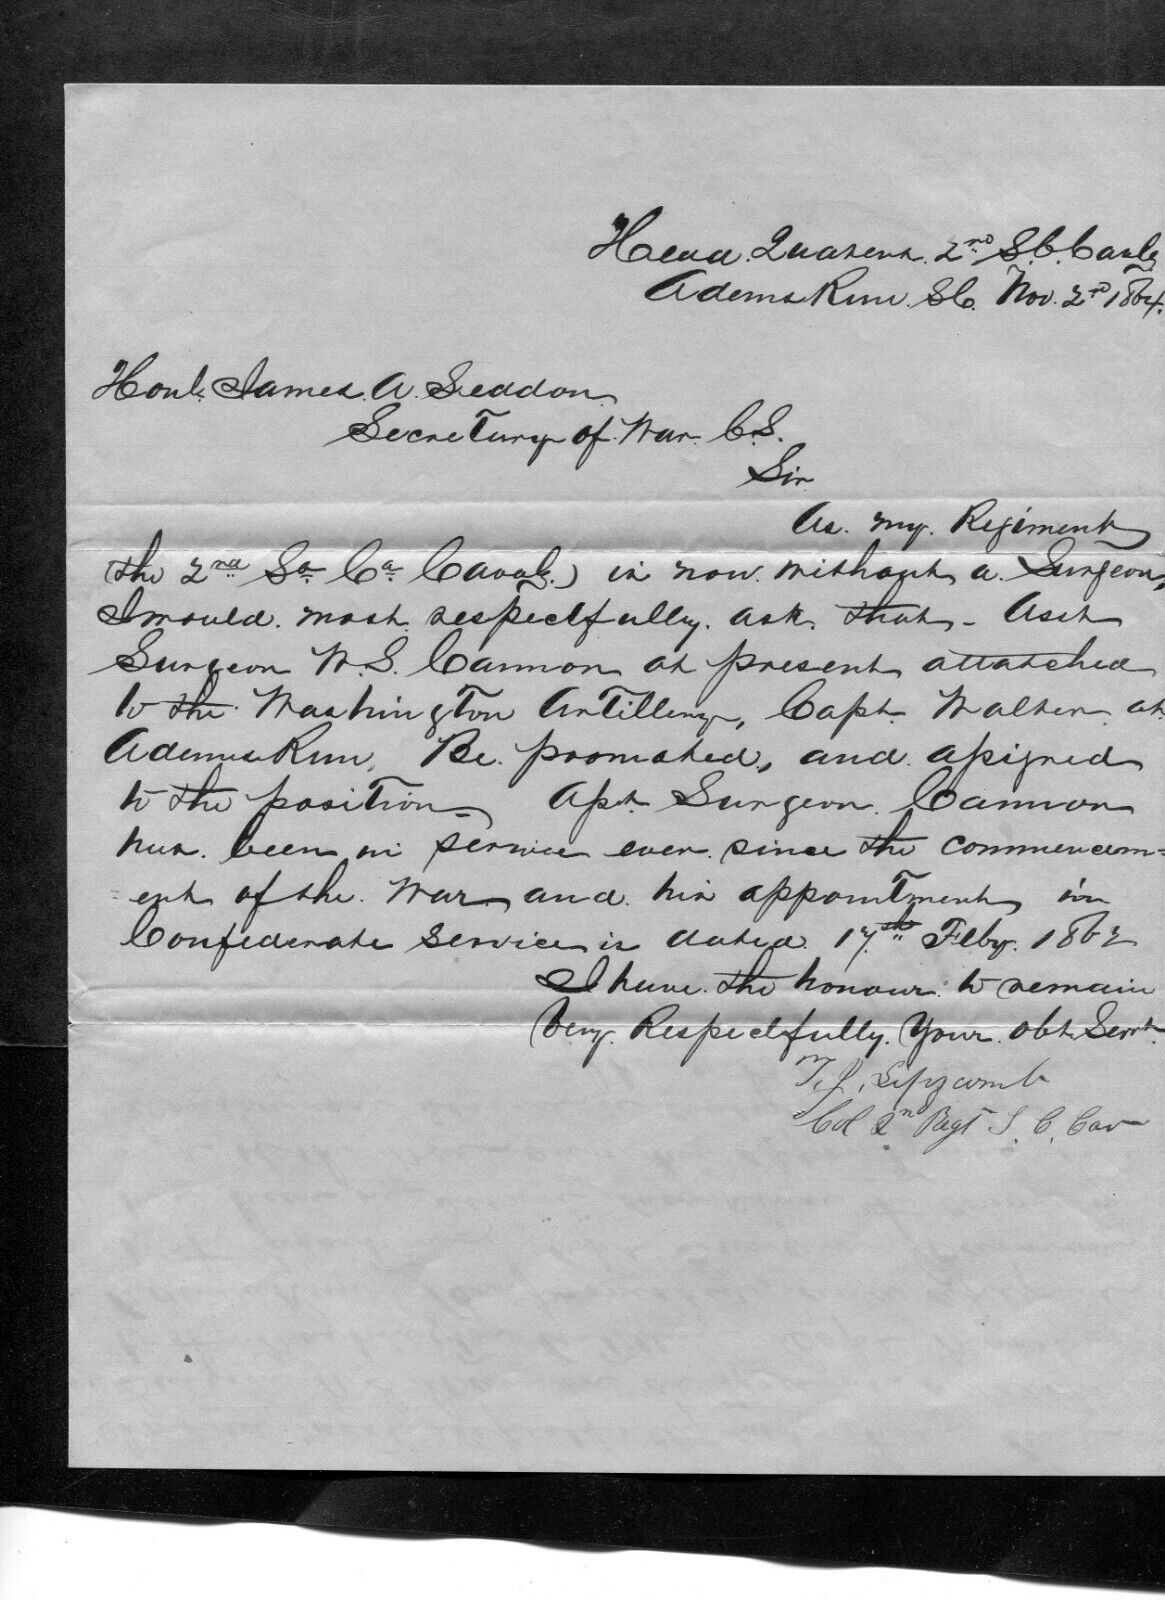 Head. Quarters. 2nd S.C. Cavly
Adams Run. S.C. Nov. 2nd 1864.
Honl. James. A. Seddon.
Secretary of War. C.S.
Sir
As. my. Regiment
(the 2nd So Ca Cavaly.) is now. without a. Surgeon,
I would. most. respectfully. ask. that - Asst
Surgeon W. S. Cannon at present attatched
to the Washington Artillery, Capt. Walter. at.
Adams Run, Be. promoted, and assigned
to the position. Asst. Surgeon. Cannon
has. been in service ever. since the commencem=
-ent of the. War. and. his appointment in
Confederate service is dated. 17th Feby. 1862
I have. the honour. to remain
Very. Respectfully. Your. Obt. Servt.
T. J. Lipscomb
Col 2nd Regt S. C. Cav